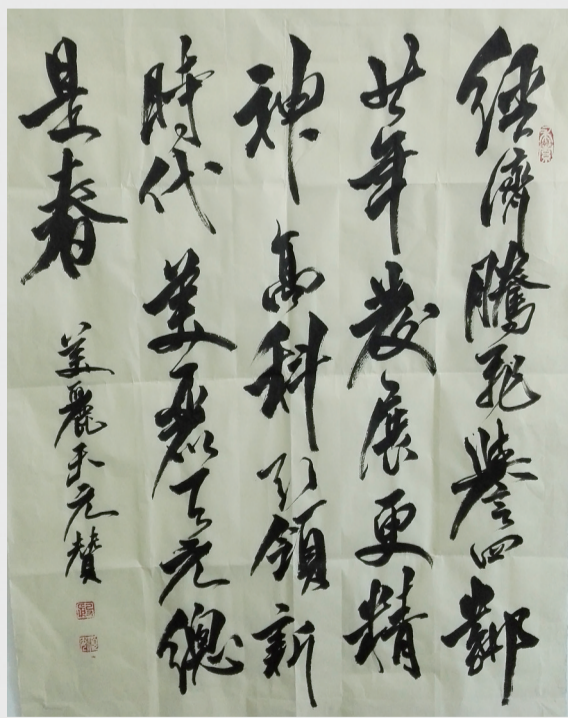 經濟騰飛譽四鄰
廿年發展更精
神高科引領新
時代美麗天元總
是春
美麗天元贊